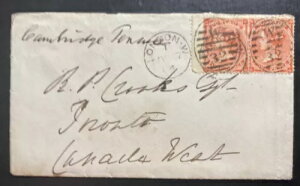 Cambridge Terrace
LONDON-W
R. P. Crooks Esqr
Toronto
Canada West